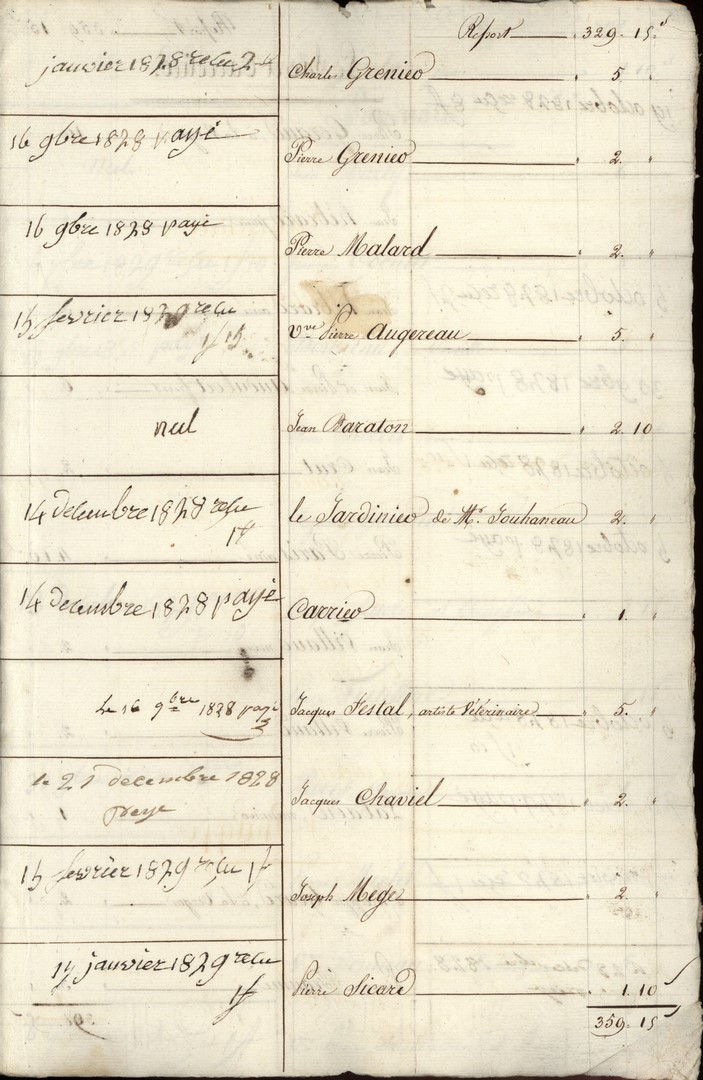 Report 329. 15.s
janvier 1828 recu 2 Charles Grenier 5 "
16 9bre 1828 payé Pierre Grenier 2. "
16 9bre 1828 payé Pierre Malard 2. "
15 fevrier 1829 recu Vve Pierre Augereau 5. "
1f 15
nul Jean Baraton 2. 10
14 decembre 1828 recu le Jardinier de Mr. Jouhaneau 2. "
1f
14 decembre 1828 payé Carrier 1. "
Le 16 9bre 1828 payé Jacques Festal, artiste Vétérinaire 5. "
le 21 decembre 1828 Jacques Chaviel 2. "
paye
15 fevrier 1829 recu 1f Joseph Mege 2. "
janvier 1829 recu Pierre Sicard 1. 10
1f
359. 15